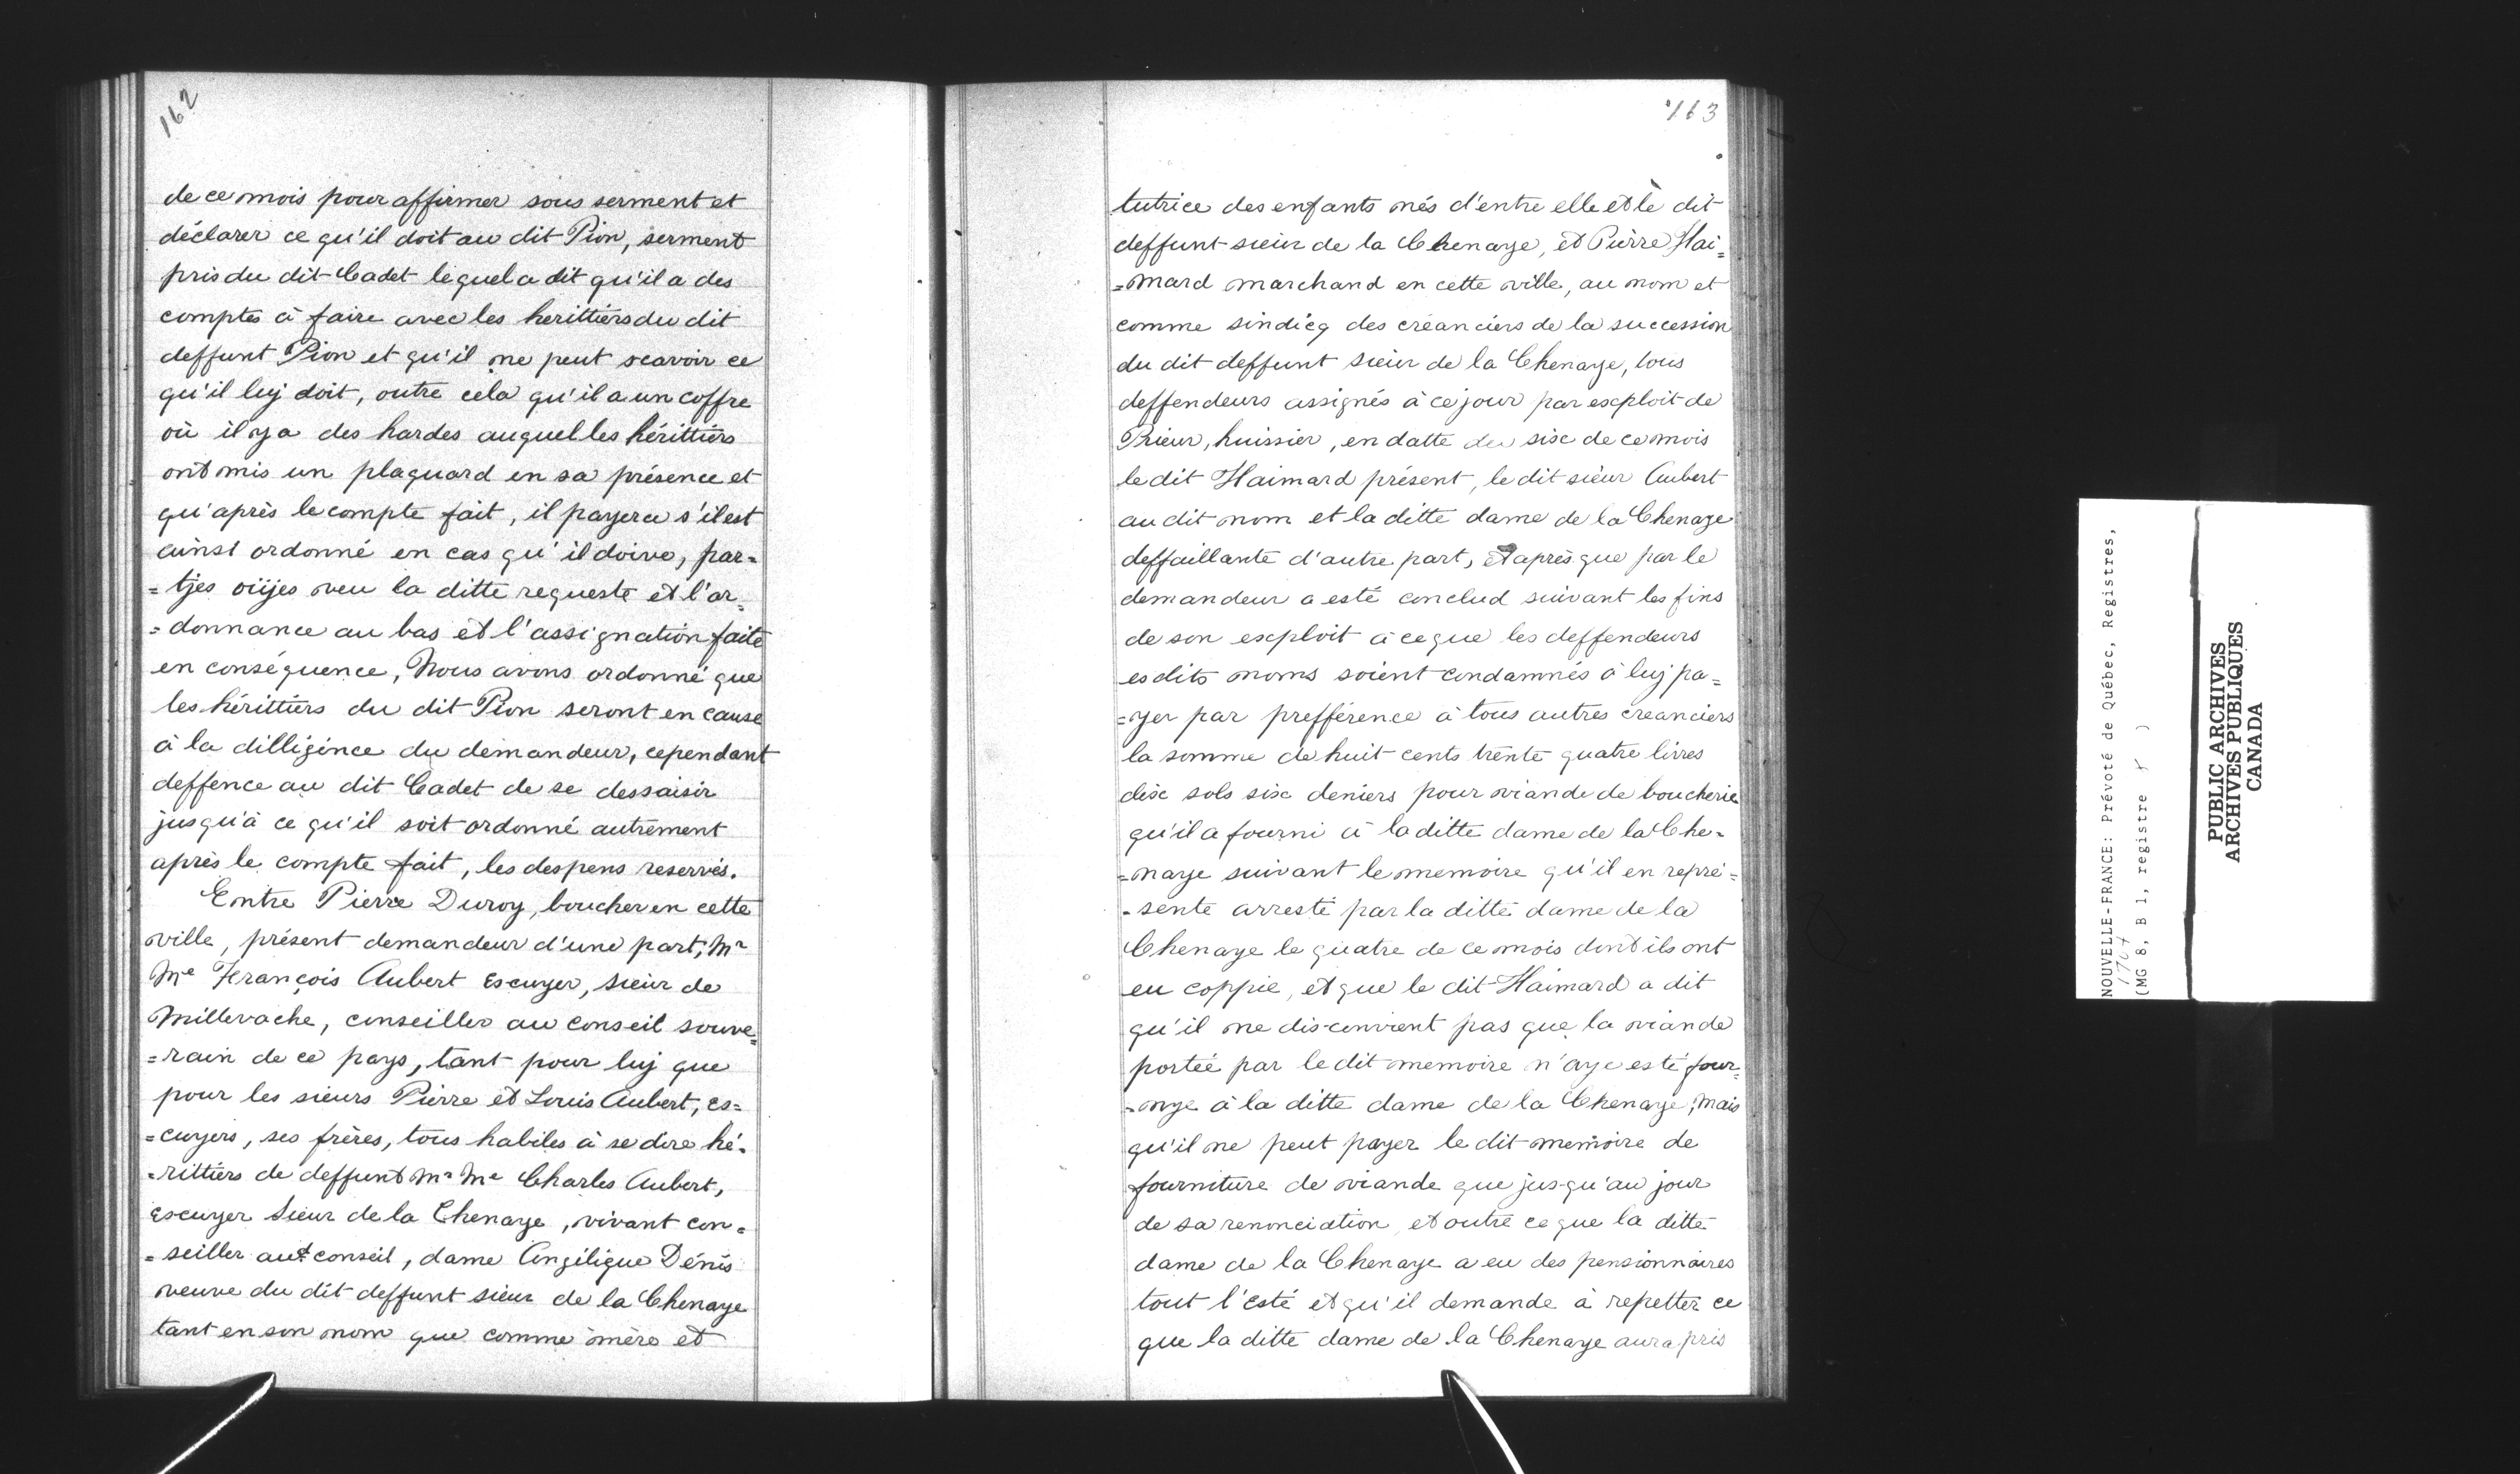 162
de ce mois pour affirmer sous serment et
déclarer ce qu'il doit au dit Pion, serment
pris du dit Cadet lequel a dit qu'il a des
comptes à faire avec les herittiers du dit
deffunt Pion et qu'il ne peut scavoir ce
qu'il luy doit, outre cela qu'il a un coffre
où il y a des hardes auquel les hérittiers
ont mis un plaquard en sa présence et
qu'après le compte fait, il payera s'il est
ainsi ordonné en cas qu'il doive, par=
=tjes oüyes veu la ditte requeste et l'or=
=donnance au bas et l'assignation faite
en conséquence, Nous avons ordonné que
les hérittiers du dit Pion seront en cause
à la dilligence du demandeur, cependant
deffence au dit Cadet de se dessaisir
jusqu'à ce qu'il soit ordonné autrement
après le compte fait, les despens reservés.
Entre Pierre Duroy, boucher en cette
ville, présent demandeur d'une part, Mr
Me François Aubert Escuyer, sieur de
Millevache, conseiller au conseil souve=
=rain de ce pays, tant pour luy que
pour les sieurs Pierre et Louis Aubert, es=
=cuyers, ses frères, tous habiles à se dire hé=
=rittiers de deffunt Mr Me Charles Aubert,
Escuyer Sieur de la Chenaye, vivant con=
=seiller aud conseil, dame Angélique Dénis
veuve du dit deffunt sieur de la Chenaye
tant en son nom que comme mère et
163
tutrice des enfants nés d'entre elle et le dit
deffunt sieur de la Chenaye, et Pierre Hai=
=mard marchand en cette ville, au nom et
comme sindicq des créanciers de la succession
du dit deffunt sieur de la Chenaye, tous
deffendeurs assignés à ce jour par exploit de
Prieur, huissier, en datte du six de ce mois
le dit Haimard présent, le dit sieur Aubert
au dit nom et la ditte dame de la Chenaye
deffaillante d'autre part, et après que par le
demandeur a esté conclud suivant les fins
de son exploit à ce que les deffendeurs
esdits noms soient condamnés à luy pa=
=yer par prefférence à tous autres creanciers
la somme de huit cents trente quatre livres
dix sols six deniers pour viande de boucherie
qu'il a fourni à la ditte dame de la Che=
=naye suivant le memoire qu'il en repré=
=sente arresté par la ditte dame de la
Chenaye le quatre de ce mois dont ils ont
eu coppie, et que le dit Haimard a dit
qu'il ne disconvient pas que la viande
portée par le dit memoire n'aye esté four=
=nye à la ditte dame de la Chenaye, mais
qu'il ne peut payer le dit memoire de
fourniture de viande que jusqu'au jour
de sa renonciation et outre ce que la ditte
dame de la Chenaye a eu des pensionnaires
tout l'Esté et qu'il demande à repetter ce
que la ditte dame de la Chenaye aura pris
NOUVELLE-FRANCE: Prévoté de Québec, Registres,
1704
(MG 8, B 1, registre )
PUBLIC ARCHIVES
ARCHIVES PUBLIQUES
CANADA